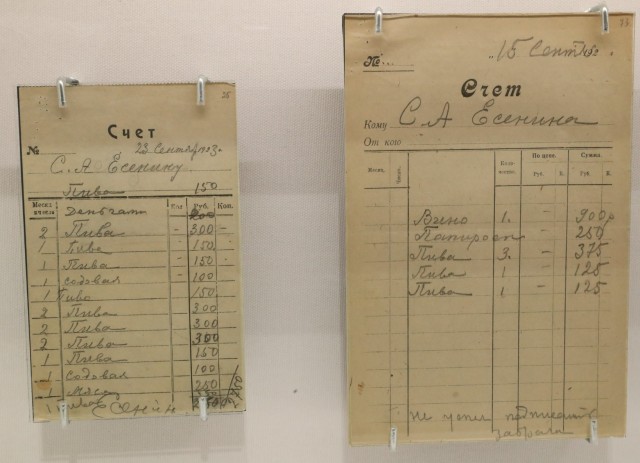 35
Счет
№ 23 Сентя 1923г.
С. А Есенину
Пива 150
Месяц и числа Кол Руб. Коп.
Деньгами 200
2 Пива 300 -
1 Пива 150 -
1 Пива 150 -
1 содовая 100
1 Пиво 150
2 Пива 300
2 Пива 300
2 Пива 300
1 Пива 150
1 содовая 100
1 Мясо 250
1
№
"15 Сент
Счет
Кому С А Есенина
От кого
Месяц. Число. Коли- чество. По цене. Сумма.
Руб. К. Руб. К.
Вино 1. - 900р
Папирос - 250
Пива 3. - 375
Пива 1 - 125
Пива 1 - 125
не успел подписать
забрали